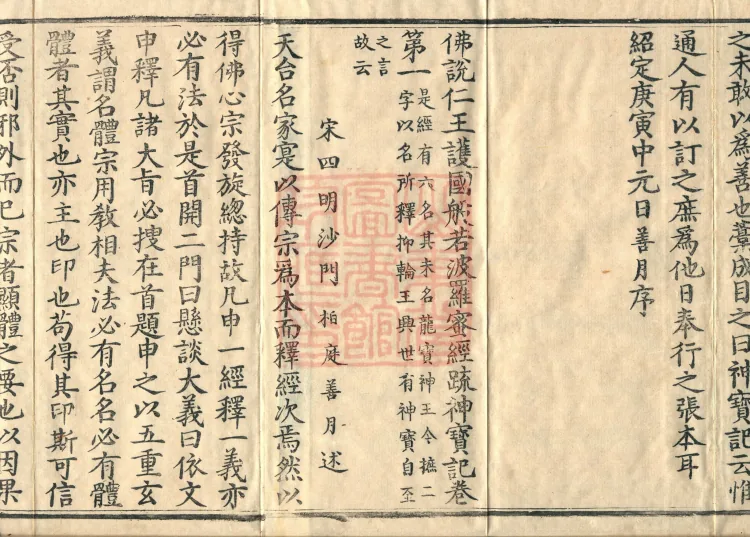 之未敢以為善也藁成目之曰神寶記云惟
通人有以訂之庶為他日奉行之張本耳
紹定庚寅中元日善月序
佛說仁王護國般若波羅蜜經疏神寶記卷
第一
是經有六名其末名龍寶神王今摭二
字以名所釋抑輪王興世有神寶自至
之言
故云
宋四明沙門栢庭善月述
天台名家寔以傳宗為本而釋經次焉然以
得佛心宗發旋總持故凡申一經釋一義亦
必有法於是首開二門曰懸談大義曰依文
申釋凡諸大旨必搜在首題申之以五重玄
義謂名體宗用教相夫法必有名名必有體
體者其實也亦主也印也苟得其印斯可信
受否則邪外而已宗者顯體之要也以因果